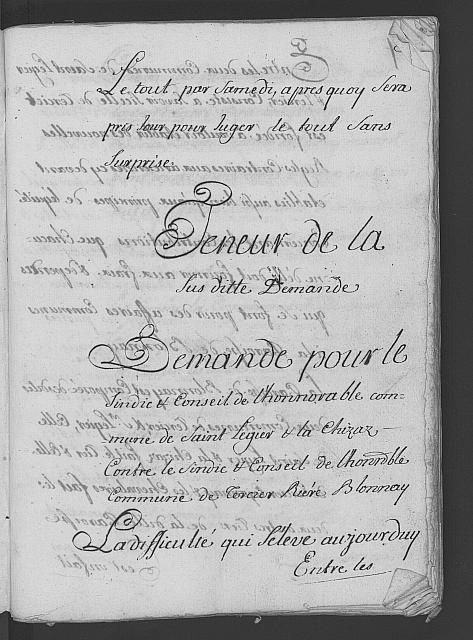 Le tout par Samedi, apres quoy Sera
pris Jour pour Juger le tout Sans
Surprise.
Teneur de la
Sus ditte Demande
Demande pour le
Sindic & Conseil de l'honnorable com-
mune de Saint Legier & la Chizaz
Contre le Sindic & Conseil de l'honrable
Commune de Tercier Rieré Blonnay
La difficulté qui S'elêve aujourduy
Entre les